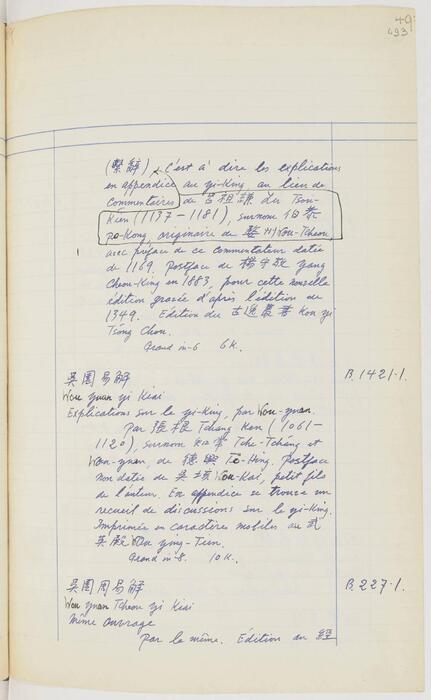 49
493
(繫辭), c'est à dire les explications
en appendice au yi-King, au lieu de
commentaires de 呂祖謙 Lu Tsou-
Kien (1137-1181), surnom 伯恭
Po-Kong originaire de 婺州 Wou-Tcheou,
avec préface de ce commentateur datée
de 1169. Postface de 楊守敬 yang
Cheou-King en 1883, pour cette nouvelle
édition gravée d'après l'édition de
1349. Edition du 古逸叢書 Kou yi
Ts'ong Chou.
Grand in-6 6K.
吳園易解
B.1421-1.
Wou yuan yi Kiai
Explications sur le yi-King, par Wou-yuan.
Par 張根 Tchang Ken (1061-
1120), surnom 知常 Tche-Tch'ang et
Wou-yuan, de 德興 Tö-Hing. Postface
non datée de 吳垓 Wou-Kai, petit fils
de l'auteur. En appendice se trouve un
recueil de discussions sur le yi-King.
Imprimée en caractères mobiles au 武
英殿 Wou ying-Tien.
Grand in-8. 10K.
吳園周易解
B.227-1.
Wou yuan Tcheou yi Kiai
Même ouvrage
Par le même. Edition du 經